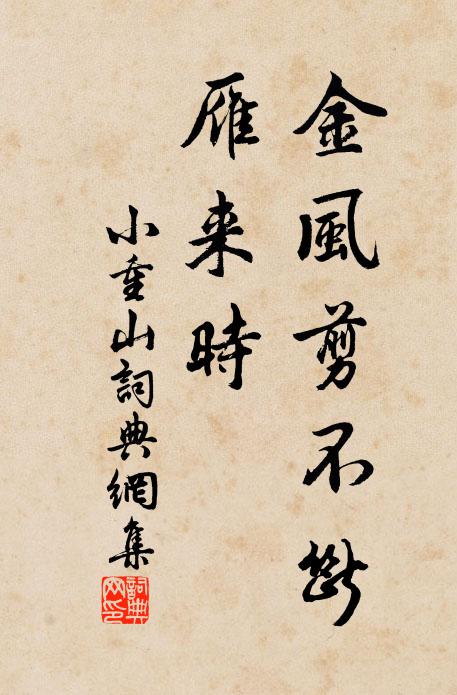 金風剪不斷
雁来時
小重山詞典網集
詞典網印